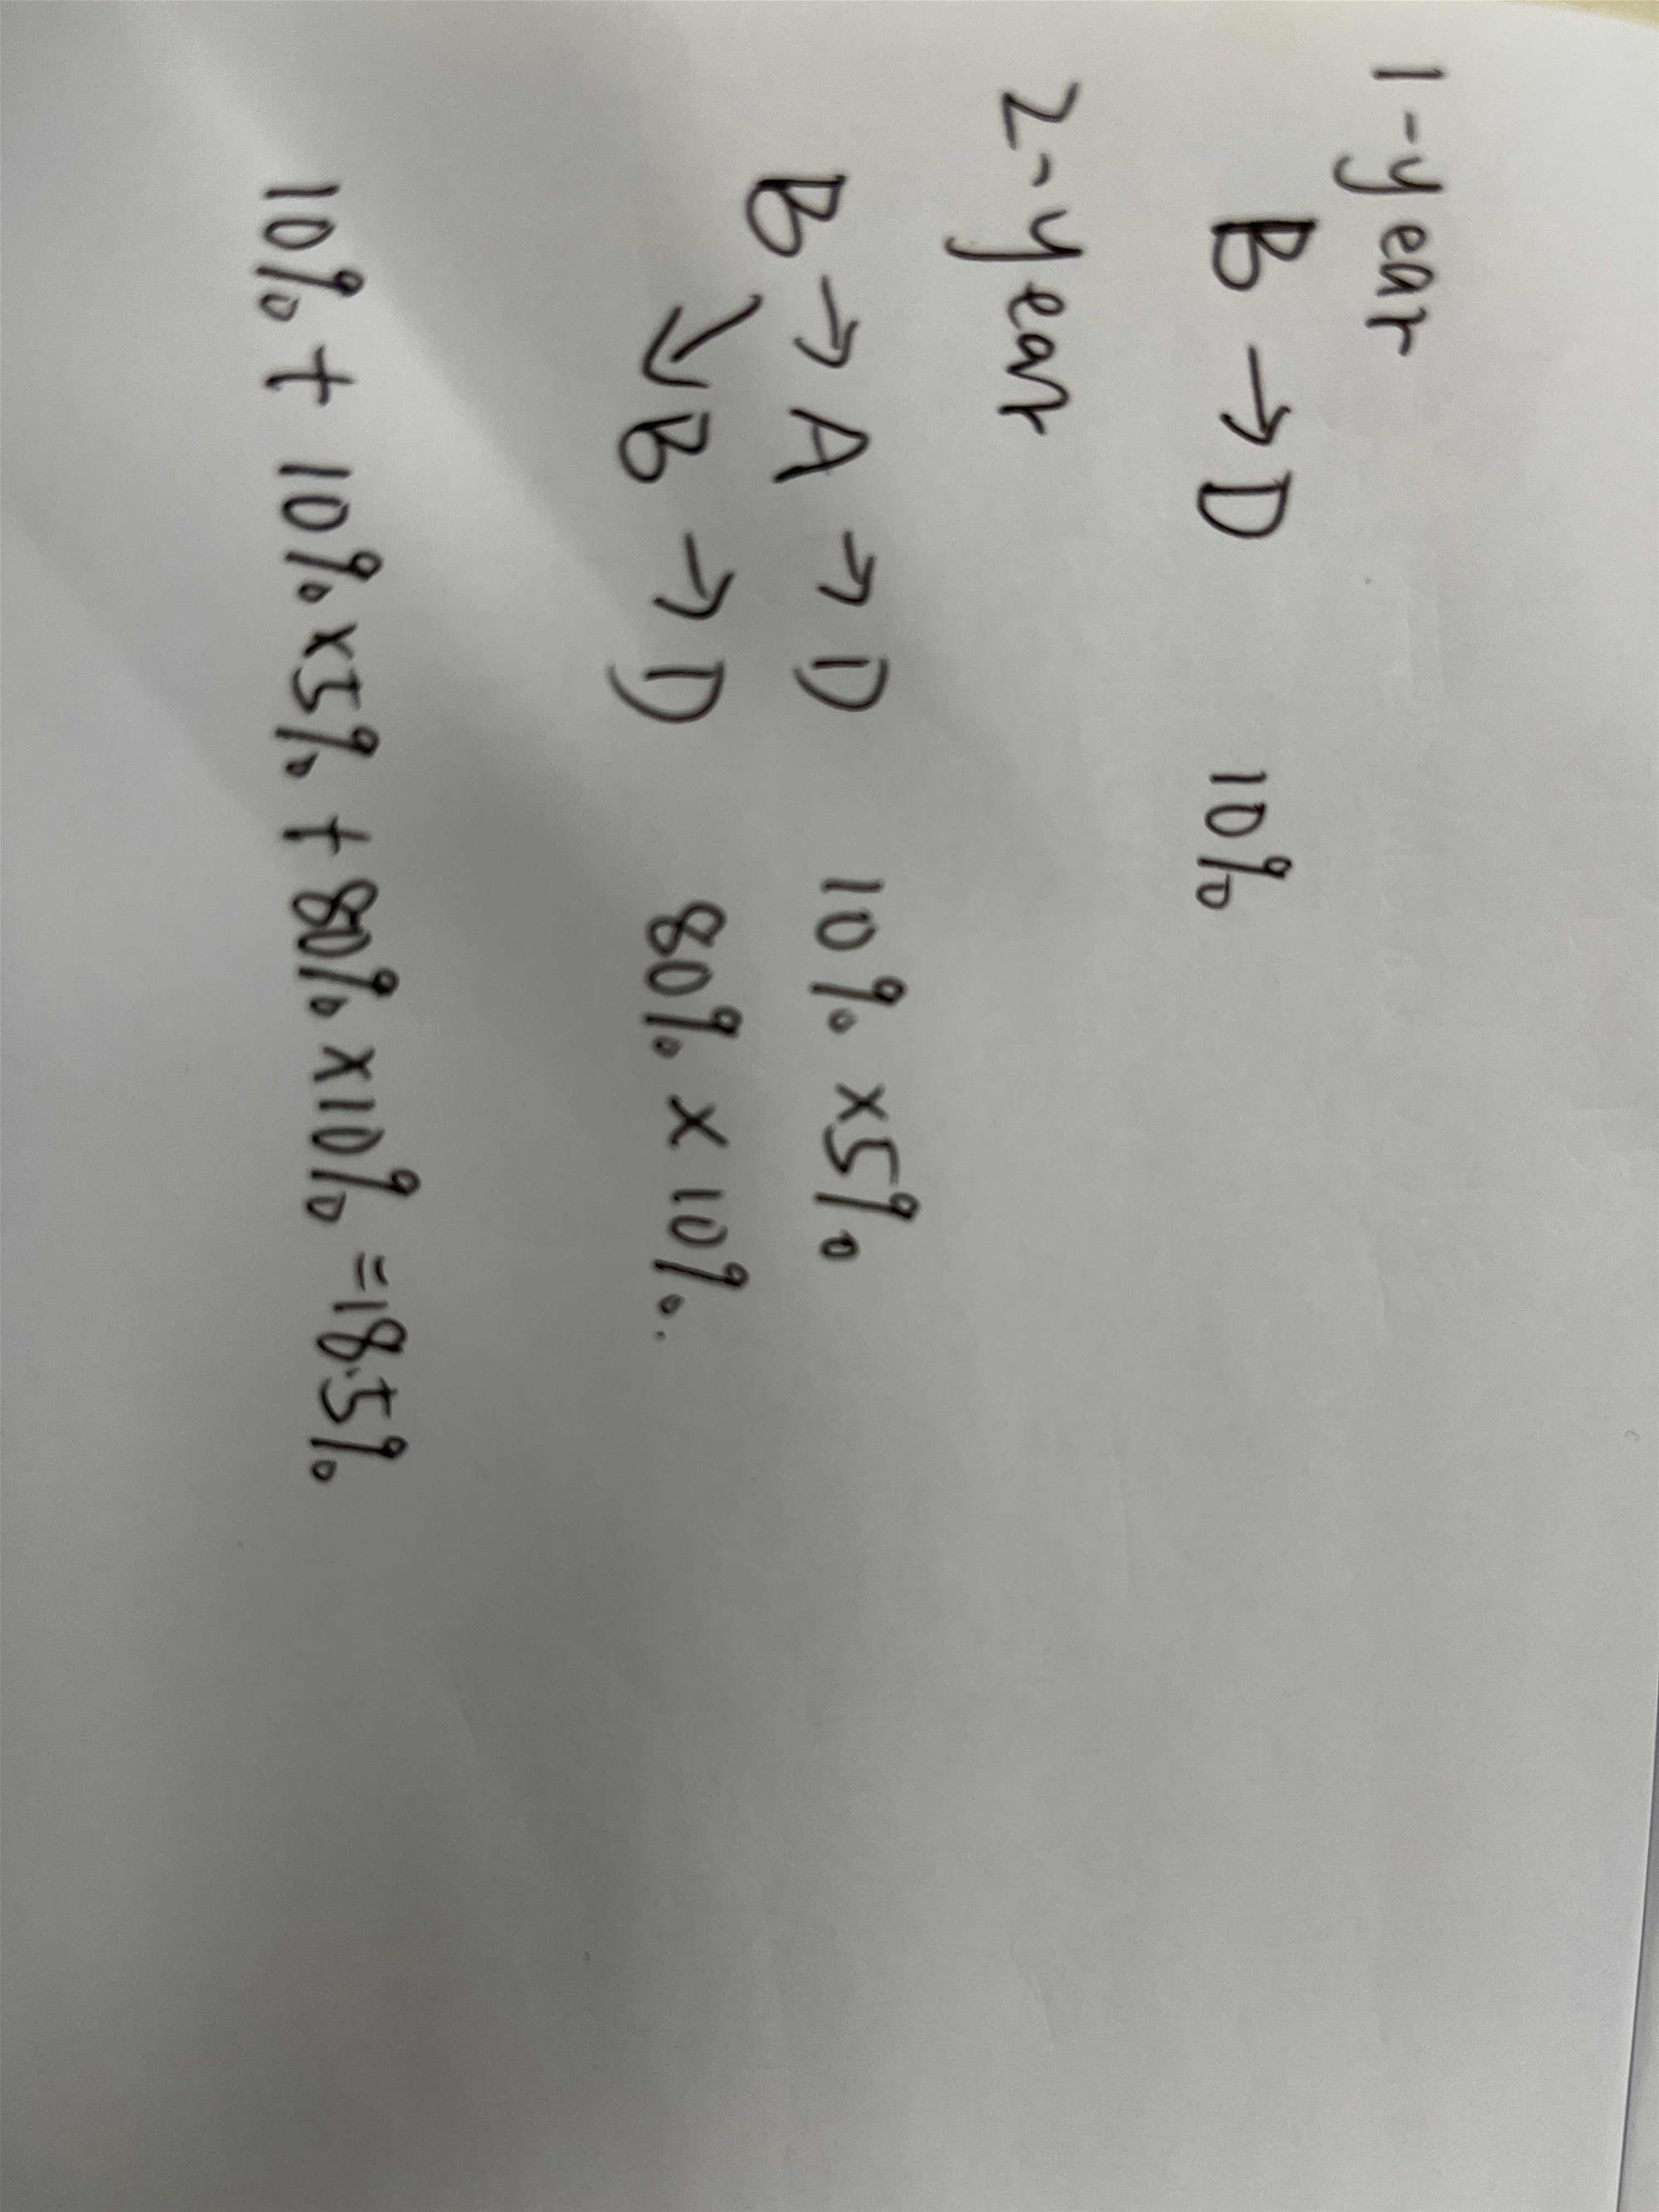 1-year
B → D 10%
2-year
B → A → D 10% × 5%
↘ B → D 80% × 10%.
10% + 10% × 5% + 80% × 10% = 18.5%